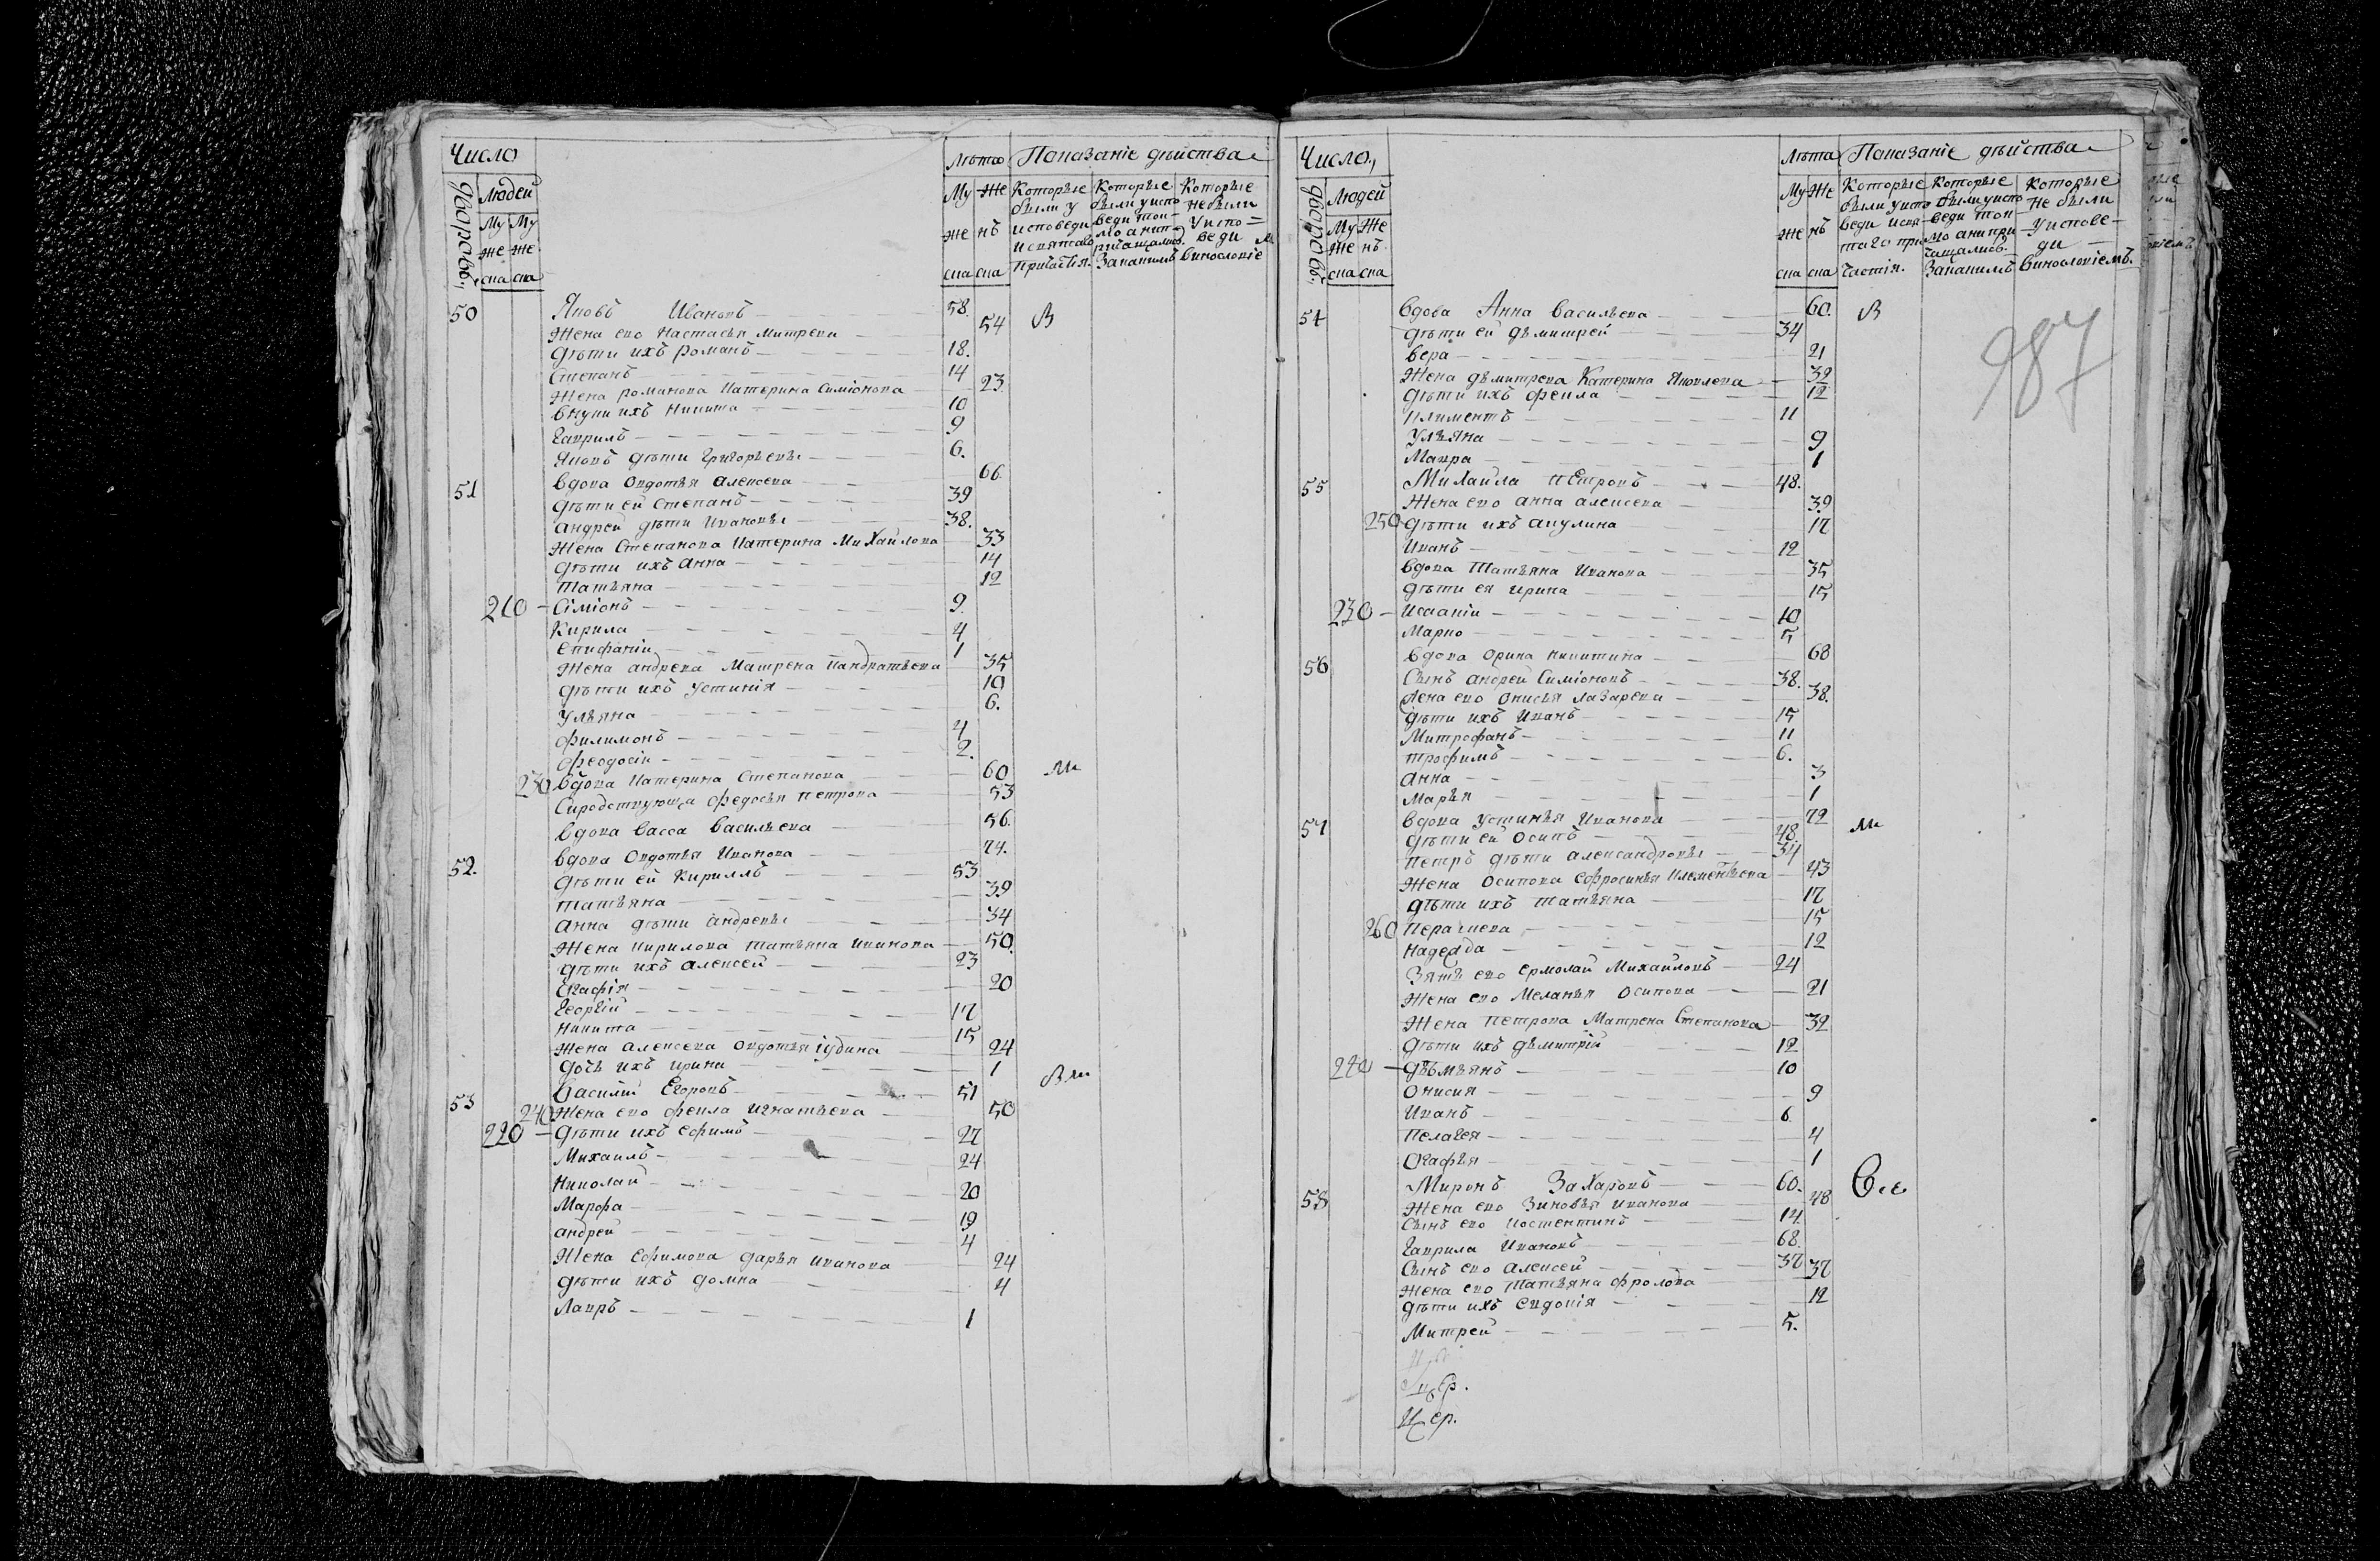 Число
Лѣта Показаніе дѣиства
дворовъ
Людей
Му Му
же же
ска ска
Му Же
же нъ
ска ска
Которые были у исповеди и святаго причастія.
Которые были у испо веди токмо а не причащались. За каким
Которые не были у исповеди винословіе
50 Яковъ Ивановъ 58.
Жена ево Настасья Митрева 54 В
дѣти ихъ романъ 18.
Степанъ 14
Жена романова Катерина Симіонова 23
Внуки ихъ Никита 10
Гаврилъ 9
Яковъ дѣти Григорьевы 6.
51 вдова Овдотья Алексева 66
дѣти ей Степанъ 39
андрей дѣти Ивановы 38.
Жена Степанова Катерина Михайлова 33
дѣти ихъ Анна 14
Татьяна 12
210 Сіміонъ 9.
Кирила 4
Епифаніи 1
Жена андрева Матрена Кандратьева 35
дѣти ихъ Устинія 10
Ульяна 6.
филимонъ 4
феодосіи 2.
230 Вдова Катерина Степанова 60 М
Сиродствующа федосья Петрова 53
вдова Васса Васильева 56.
52. вдова Овдотья Иванова 74.
дѣти ей Кириллъ 53
татьяна 39
Анна дѣти Андревы 34
Жена Кирилова Татьяна Иванова 50.
дѣти ихъ Алексей 23
Егафія 20
Георгій 17
Никита 15
Жена Алексева Овдотья іудина 24
дочь ихъ ирина 1
53 Василий Егоровъ 51 В м
240 Жена ево фекла Игнатьева 50
220 дѣти ихъ Ефимъ 27
Михаилъ 24
Николай 20
Марфа 19
андрей 4
Жена Ефимова дарья иванова 24
дѣти ихъ домна 4
Лавръ 1
Число,
Лѣта Показаніе дѣиства
дворовъ
Людей
Му Же
же нъ
ска ска
Му Же
же нъ
ска ска
Которые были у испо веди и свя таго при частія.
Которые были у испо веди ток мо а не при чащались. За каким
Которые не были у испове ди винословіемъ.
54 вдова Анна Васильева 60. В
дѣти ей дѣмитрей 34
Вера 21
987
Жена дѣмитрева Катерина Яковлева 32
дѣти ихъ фекла 12
Климентъ 11
Ульяна 9
Мавра 1
55 Михайла Петровъ 48.
Жена ево анна алексева 39
250 дѣти ихъ акулина 17
Иванъ 12
вдова Татьяна Иванова 35
дѣти ея ирина 15
230 Исаакіи 10
Марко 5
56 вдова Орина никитина 68
Сынъ андрей Симіоновъ 38.
Жена ево Онисья лазарева 38.
дѣти ихъ Иванъ 15
Митрофанъ 11
Трофимъ 6.
Анна 3
Марья 1
57 вдова Устинья Иванова 72 М
дѣти ей Осипъ 48.
Петръ дѣти Александровы 34
Жена Осипова Ефросинья Клементьева 43
дѣти ихъ татьяна 17
260 Параскева 15
Надежда 12
Зять ево Ермолай Михайловъ 24
Жена ево Меланья Осипова 21
Жена Петрова Матрена Степанова 32
дѣти ихъ дѣмитрій 12
240 дѣмьянъ 10
Онисия 9
Иванъ 6
Пелагея 4
Огафья 1
58 Миронъ Захаровъ 60. Все
Жена ево Зиновья иванова 48
Сынъ ево Костентинъ 14
Гаврила Ивановъ 68.
Сынъ ево Алексей 37
Жена ево Татьяна фролова 37
дѣти ихъ Евдокія 12
Митрей 5.